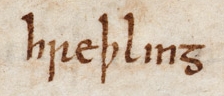 hreþling